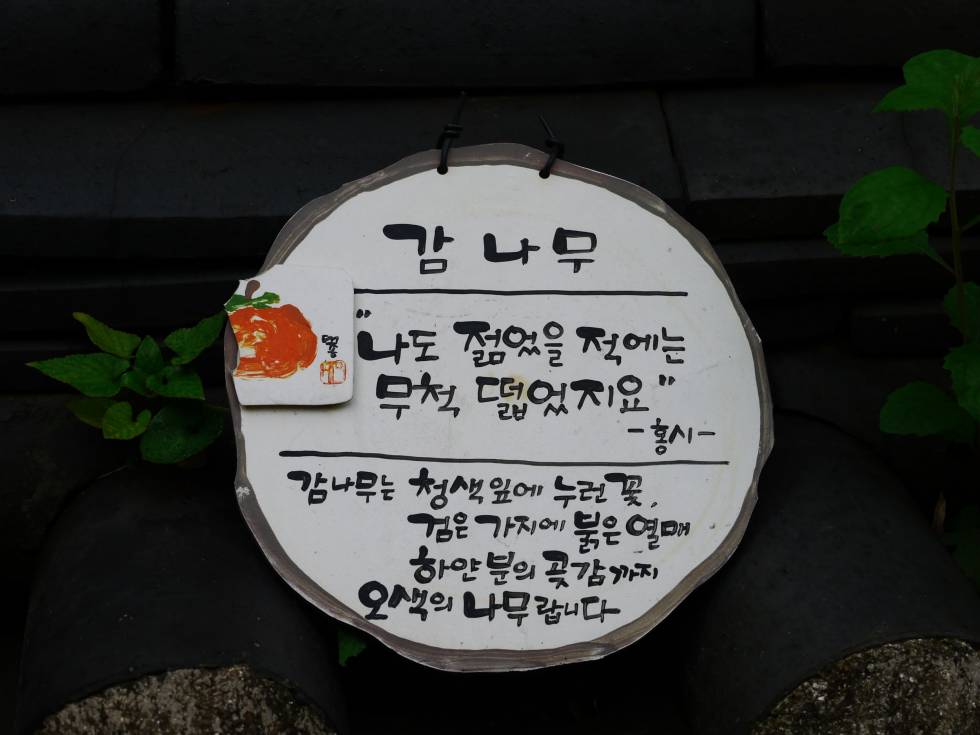 감나무
"나도 젊었을 적에는
무척 떫었지요"
-홍시-
감나무는 청색잎에 누런 꽃,
검은 가지에 붉은 열매
하얀 분의 곶감까지
오색의 나무랍니다